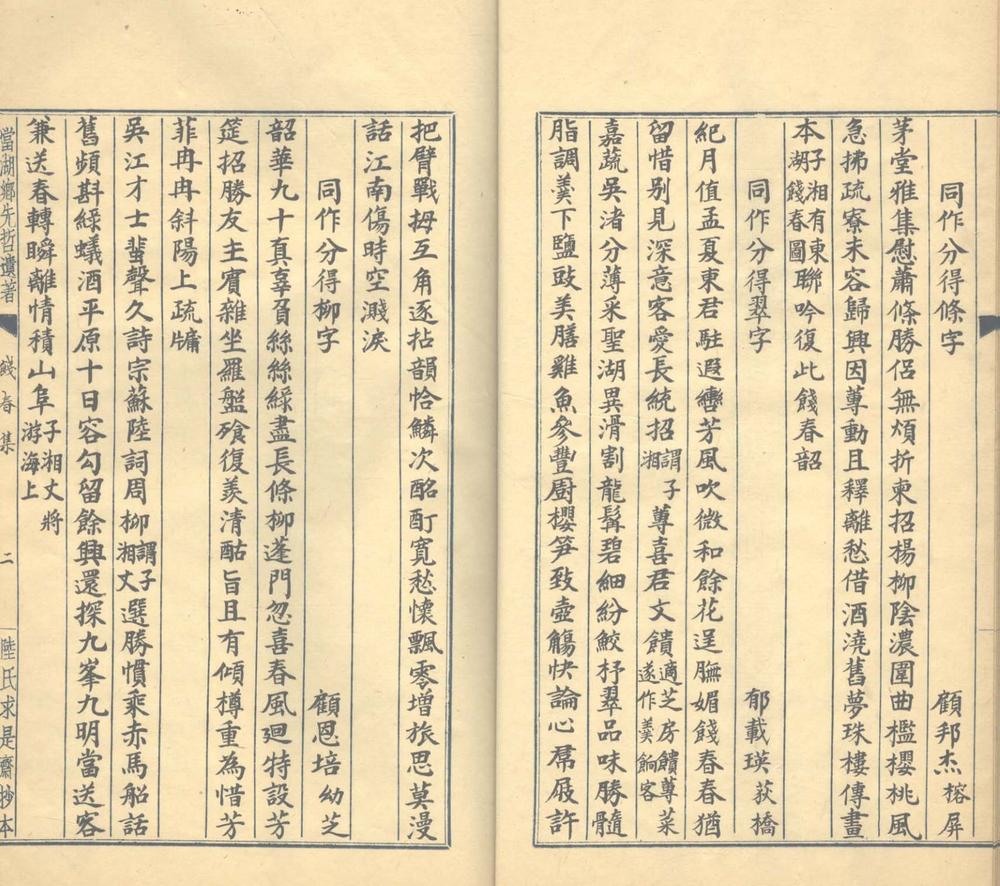 同作分得條字　顧邦杰榕屏
茅堂雅集慰蕭條勝侶無煩折柬招楊柳陰濃圍曲檻櫻桃風
急拂疏寮未容歸興因蓴動且釋離愁借酒澆舊夢珠樓傳畫
本子湘有東湖餞春圖聯吟復此餞春韶
同作分得翠字　郁載瑛荻橋
紀月值孟夏東君駐遐轡芳風吹微和餘花逞膴媚餞春春猶
留惜别見深意客愛長統招謂子湘蓴喜君文饋適芝房饋蓴菜遂作羹餉客
嘉蔬吳渚分薄采聖湖異滑割龍髯碧細紛鮫杼翠品味勝髓
脂調羹下鹽豉美膳雞魚參豐厨櫻笋致壺觴快論心屏屐許
把臂戰拇互角逐拈韻恰鱗次酩酊寬愁懷飄零增旅思莫漫
話江南傷時空濺淚
同作分得柳字　顧恩培幼芝
韶華九十真辜負絲絲綠盡長條柳蓬門忽喜春風迴特設芳
筵招勝友主賓雜坐羅盤飱復羨清酤旨且有傾樽重為惜芳
菲冉冉斜陽上疏牖
吳江才士蜚聲久詩宗蘇陸詞周柳謂子湘丈選勝慣乘赤馬船話
舊頻斟綠蟻酒平原十日容勾留餘興還探九峯九明當送客
兼送春轉瞬離情積山阜子湘丈將游海上
當湖鄉先哲遺著　餞春集　二　陸氏求是齋抄本